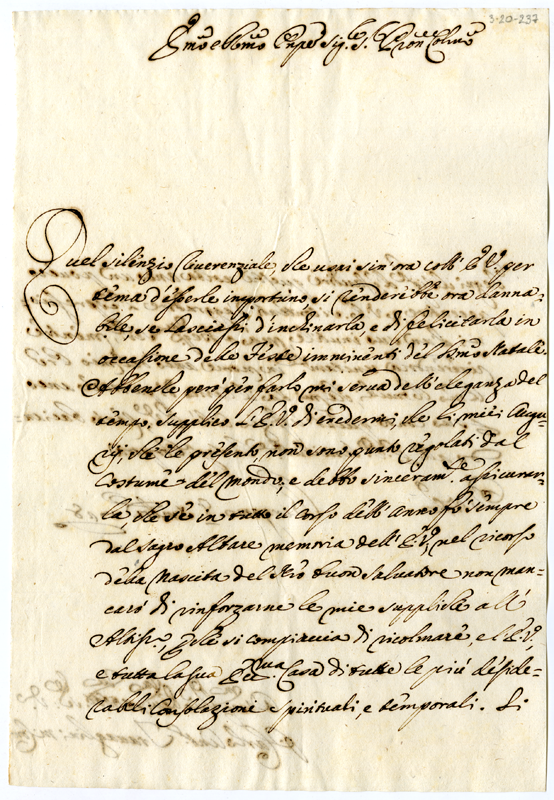 3-20-237
Quel silenzio reverenziale, che usai sin'ora coll' E. V. per
tema d'esserle importuno si renderebbe ora danna=
bile, se lasciassi d'inclinarla, e di felicitarla in
occasione delle Feste imminenti del SSmo Natale.
Abbenche però per farlo mi serva dell'eleganza del
tempo, supplico l'E. V. di credermi, che li miei Augu=
rij, che le presento, non sono punto regolati dal
costume del mondo, e debbo sinceram.te assicurar=
la, che se in tutto il corso dell' anno fò sempre
dal Sagro Altare memoria dell' E. V., nel ricorso
della nascita del Nro buon Salvatore non man=
carò di rinforzarne le mie suppliche all'
Altiss.o, perche si compiaccia di ricolmare, e l'E. V.,
e tutta la sua Ecc.ma Casa di tutte le più deside=
rabili Consolazioni spirituali, e temporali. Li